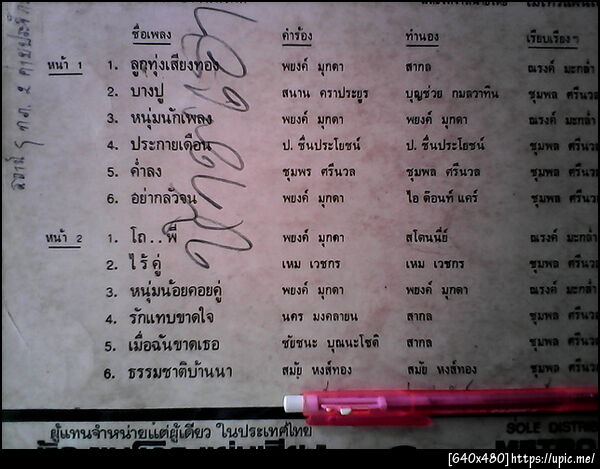 ชื่อเพลง คำร้อง ทำนอง เรียบเรียงฯ
หน้า 1 1. ลูกทุ่งเสียงทอง พยงค์ มุกดา สากล ณรงค์ มะกล่ำ
2. บางปู สนาน คราประยูร บุญช่วย กมลวาทิน ชุมพล ศรีนวล
3. หนุ่มนักเพลง พยงค์ มุกดา พยงค์ มุกดา ณรงค์ มะกล่ำ
4. ประกายเดือน ป. ชื่นประโยชน์ ป. ชื่นประโยชน์ ชุมพล ศรีนวล
5. ค่ำลง ชุมพร ศรีนวล ชุมพล ศรีนวล ชุมพล ศรีนวล
6. อย่ากลัวจน พยงค์ มุกดา ไอ ด๊อนท์ แคร์ ชุมพล ศรีนวล
หน้า 2 1. โถ..พี่ พยงค์ มุกดา สโตนนี่ย์ ณรงค์ มะกล่ำ
2. ไร้คู่ เหม เวชกร เหม เวชกร ชุมพล ศรีนวล
3. หนุ่มน้อยคอยคู่ พยงค์ มุกดา พยงค์ มุกดา ณรงค์ มะกล่ำ
4. รักแทบขาดใจ นคร มงคลายน สากล ชุมพล ศรีนวล
5. เมื่อฉันขาดเธอ ชัยชนะ บุณนะโชติ สากล ชุมพล ศรีนวล
6. ธรรมชาติบ้านนา สมัย หงส์ทอง สมัย หงส์ทอง ชุมพล ศรีนวล
ผู้แทนจำหน่ายแต่ผู้เดียว ในประเทศไทย SOLE DISTRIB
METRO
[640x480]https://upic.me/